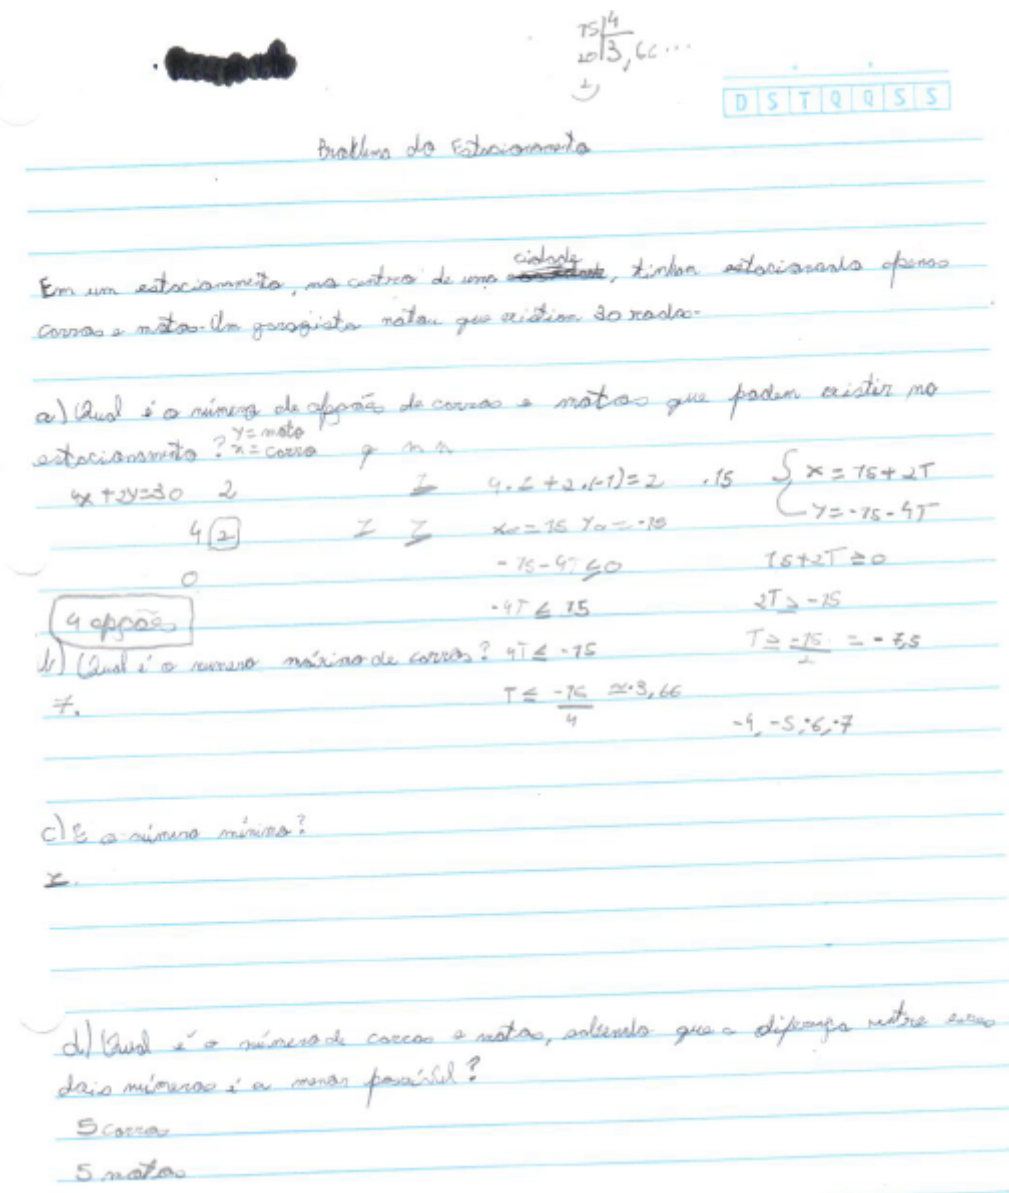 75 4
20 3,66...
2
D S T Q Q S S
Problema do Estacionamento
cidade
Em um estacionamento, no centro de uma, tinham estacionado apenas
carros e motos. Um garagista notou que existiam 30 rodas.
a) Qual é o número de opções de carros e motos que podem existir no
estacionamento? y = moto
x = carro q
4x + 2y = 30 2 4.1 + 2.(-1) = 2 .15 { x = 15 + 2T
4 2 x₀ = 15 y₀ = -15 y = -15 - 4T
0 -15 - 4T ≤ 0 15 + 2T ≥ 0
4 opções -4T ≤ 15 2T ≥ -15
b) Qual é o numero máximo de carros? 4T ≤ -15 T ≥ -15/2 = -7,5
7. T ≤ -15/4 ≃ -3,66
-4, -5, -6, -7
c) E o número mínimo?
1.
d) Qual é o número de carros e motos, sabendo que a diferença entre esses
dois números é a menor possível?
5 carros
5 motos